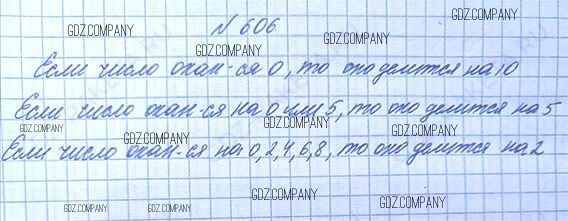 N 606
Если число окан-ся 0, то оно делится на 10
Если число окан-ся на 0 или 5, то оно делится на 5
Если число окан-ся на 0, 2, 4, 6, 8, то оно делится на 2
GDZ.COMPANY
GDZ.COMPANY
GDZ.COMPANY
GDZ.COMPANY
GDZ.COMPANY
GDZ.COMPANY
GDZ.COMPANY
GDZ.COMPANY
GDZ.COMPANY
GDZ.COMPANY
GDZ.COMPANY
GDZ.COMPANY
GDZ.COMPANY